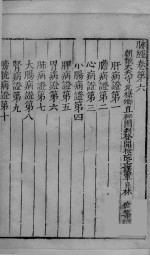 脉經卷第六
朝散大夫守光祿卿直祕閣判登聞檢院上護軍臣林億等類次
肝病證第一
膽病證第二
心病證第三
小腸病證第四
脾病證第五
胃病證第六
肺病證第七
大腸病證第八
腎病證第九
膀胱病證第十